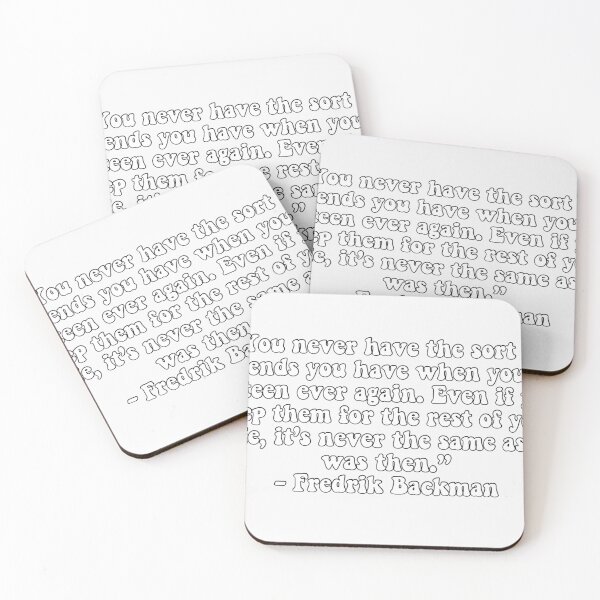 You never have the sort
ends you have when you
een ever again. Even
ep them for the rest
You never have the sort
ends you have when you
een ever again. Even if
ep them for the rest of y
e, it's never the same as
was then.”
man
You never have the sort
ends you have when you
een ever again. Even if
ep them for the rest of y
e, it's never the same
was then
– Fredrik Ba
You never have the sort
ends you have when you
een ever again. Even if
ep them for the rest of y
e, it's never the same as
was then.”
– Fredrik Backman